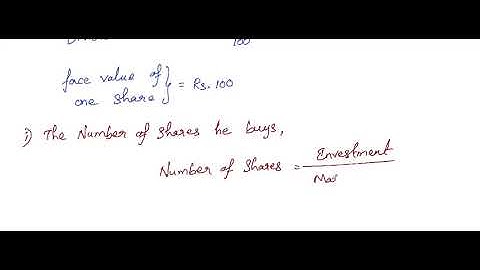 100
face value of
one share } = Rs. 100
i) The Number of shares he buys,
Number of shares = Investment
Ma